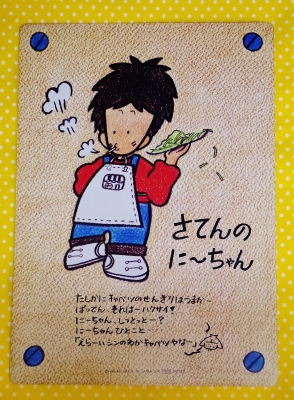 さてんの
に〜ちゃん
たしかにキャベツのせんぎりはうまか〜
ばってん、それは〜ハクサイ!!
に〜ちゃん、しっとっと〜?
に〜ちゃんひとこと…
「えら〜いシンのあかキャベツやな〜」